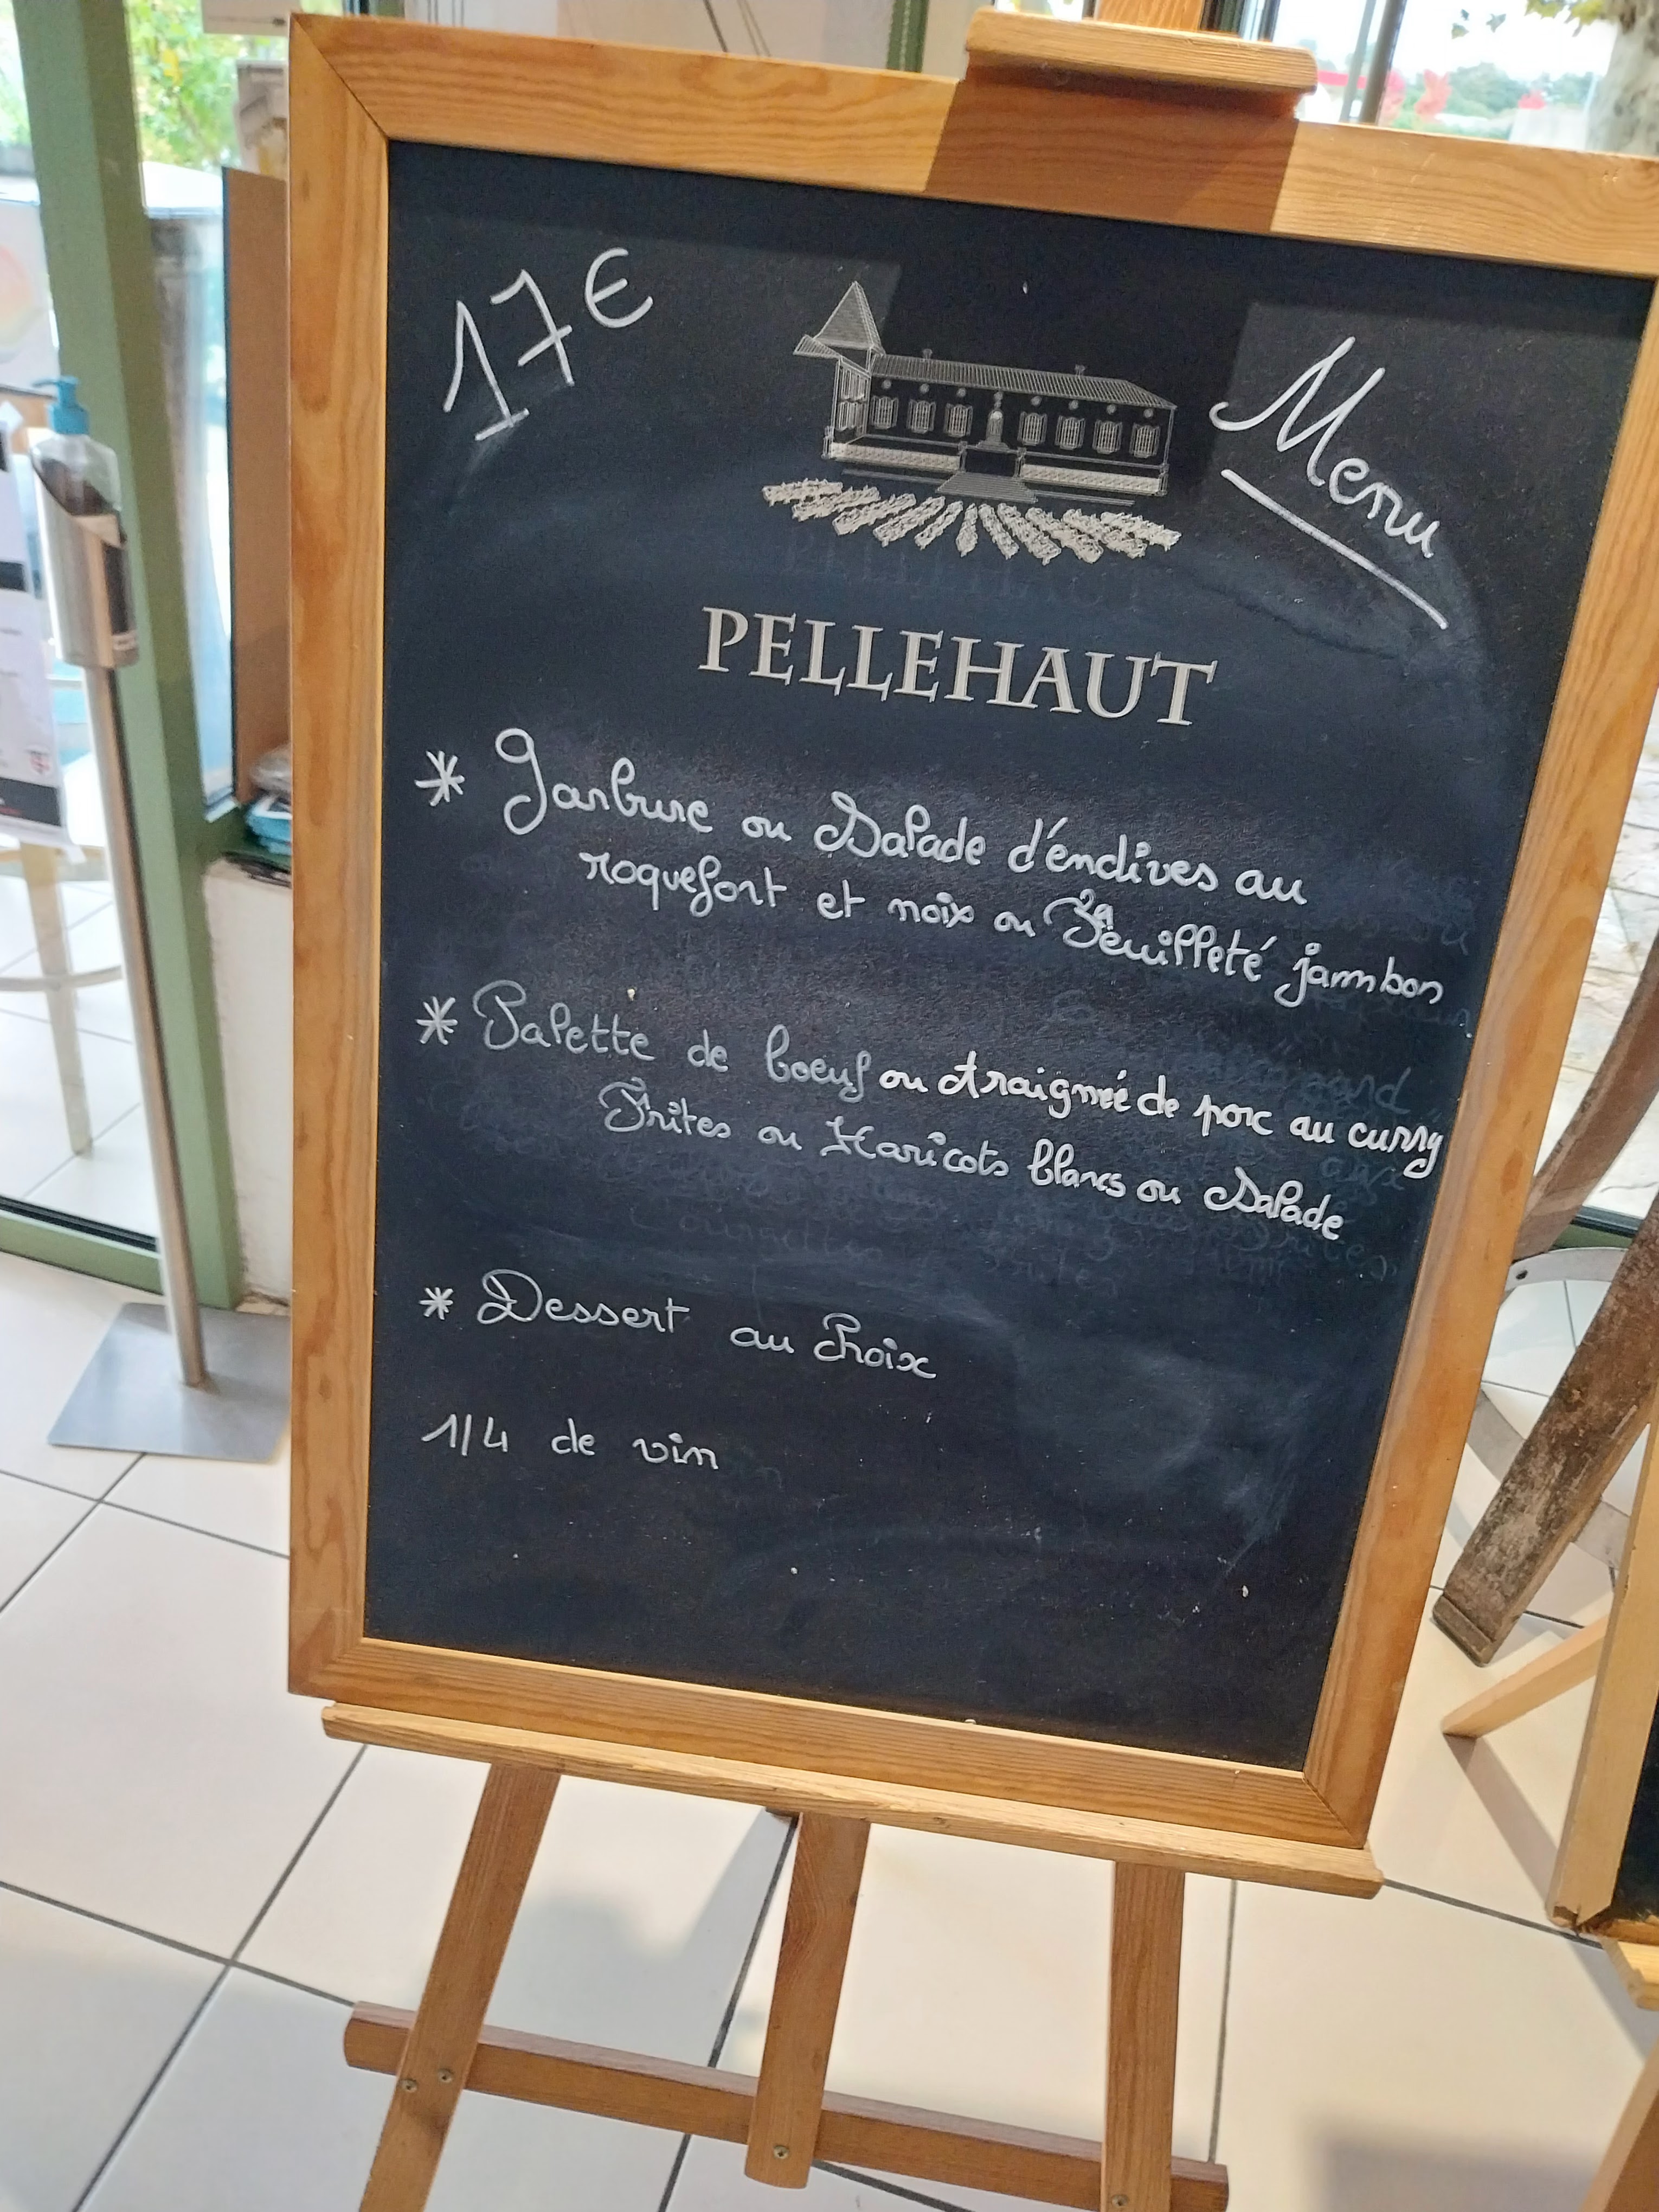 17€
Menu
PELLEHAUT
* Garbure ou Salade d'éndives au
roquefort et noix ou Feuilleté jambon
* Palette de boeuf ou Araignée de porc au curry
Frites ou Haricots blancs ou Salade
* Dessert au Choix
1/4 de vin